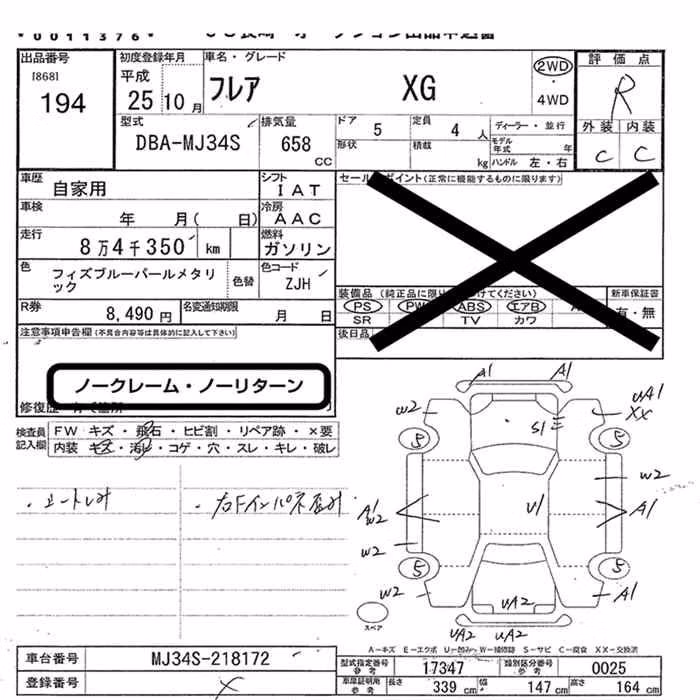 *0011376*
出品番号 初度登録年月 車名・グレード 評価点
18681
194
平成
25 10月
フレア XG
2WD
・
4WD
R
外装 内装
C C
型式
DBA-MJ34S
排気量
658 CC
ドア 5 定員 4人 ディーラー・並行
形状 積載 kg モデル年式 年
ハンドル 左・右
車歴 自家用
シフト IAT
セールスポイント(正常に機能するものに限ります)
車検 年 月( 日)
冷房 AAC
走行 8万4千350 km
燃料 ガソリン
色 フィズブルーパールメタリック
色替
色コード ZJH
R券 8,490円
名変通知期限 月 日
新車保証書
有・無
PS PW ABS エアB
SR TV カワ
後日品
注意事項申告欄(不具合内容等は具体的に記入して下さい)
ノークレーム・ノーリターン
検査員記入欄
FW キズ・飛石・ヒビ割・リペア跡・×要
内装 キズ・汚レ・コゲ・穴・スレ・キレ・破レ
・シートしみ
・右Fインパネ歪み
A1 A1
W2 UA1
XX
S1
5 5
W2
A1
W2
U1 A1
W2
5 5
W2 A1
UA2
UA2 UA2
スペア
A-キズ E-エクボ U-凹み W-補修跡 S-サビ C-腐食 XX-交換済
車台番号 MJ34S-218172
登録番号 ×
型式指定番号 参考 17347 類別区分番号 参考 0025
車庫証明用 参考 長さ 339 cm 幅 147 cm 高さ 164 cm